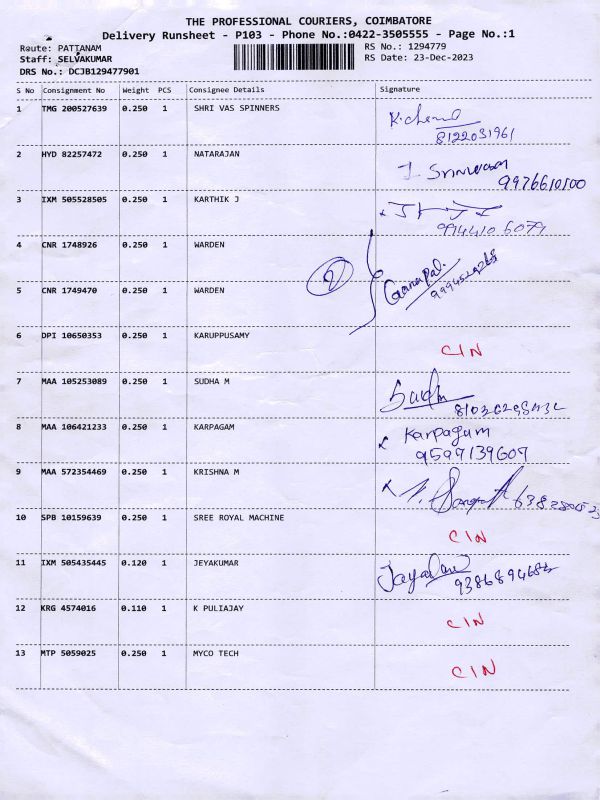 THE PROFESSIONAL COURIERS, COIMBATORE
Delivery Runsheet - P103 - Phone No.:0422-3505555 - Page No.:1
Route: PATTANAM
RS No.: 1294779
Staff: SELVAKUMAR
RS Date: 23-Dec-2023
DRS No.: DCJB129477901
S No Consignment No Weight PCS Consignee Details Signature
1 TMG 200527639 0.250 1 SHRI VAS SPINNERS
8122031961
2 HYD 82257472 0.250 1 NATARAJAN
9976610100
3 IXM 505528505 0.250 1 KARTHIK J
994410 6079
4 CNR 1748926 0.250 1 WARDEN
2
5 CNR 1749470 0.250 1 WARDEN
6 DPI 10650353 0.250 1 KARUPPUSAMY CIN
7 MAA 105253089 0.250 1 SUDHA M
8 MAA 106421233 0.250 1 KARPAGAM Karpagam
9597139607
9 MAA 572354469 0.250 1 KRISHNA M
10 SPB 10159639 0.250 1 SREE ROYAL MACHINE CIN
11 IXM 505435445 0.120 1 JEYAKUMAR
12 KRG 4574016 0.110 1 K PULIAJAY CIN
13 MTP 5059025 0.250 1 MYCO TECH CIN